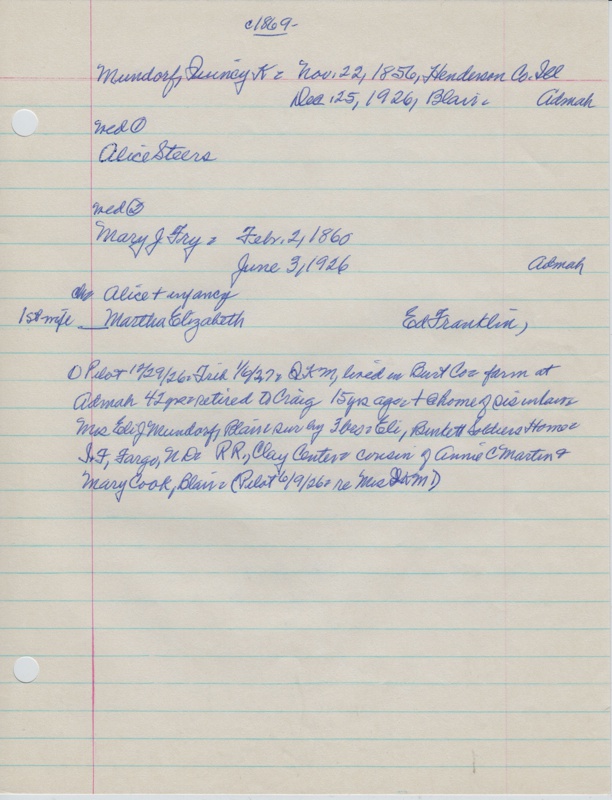 c1869-
Mundorf, Quincy K: Nov. 22, 1856, Henderson Co. Ill
Dec. 25, 1926, Blair: Admah
wed ①
Alice Steers
wed ②
Mary J Fry: Febr. 2, 1860
June 3, 1926 Admah
ch: Alice + infancy
1st wife Martha Elizabeth Ed Franklin,
① Pilot 12/29/26: Trib 1/6/27: QKM, lived in Burt Co: farm at
Admah 42 yrs: retired to Craig 15 yrs ago: + @ home of sis in law
Mrs Eli J Mundorf, Blair: sur by 3 bros: Eli, Burkett Soldiers Home:
I.F., Fargo, N.D: R.R., Clay Center: cousin of Annie C Martin &
Mary Cook, Blair: (Pilot 6/9/26: re Mrs QKM)